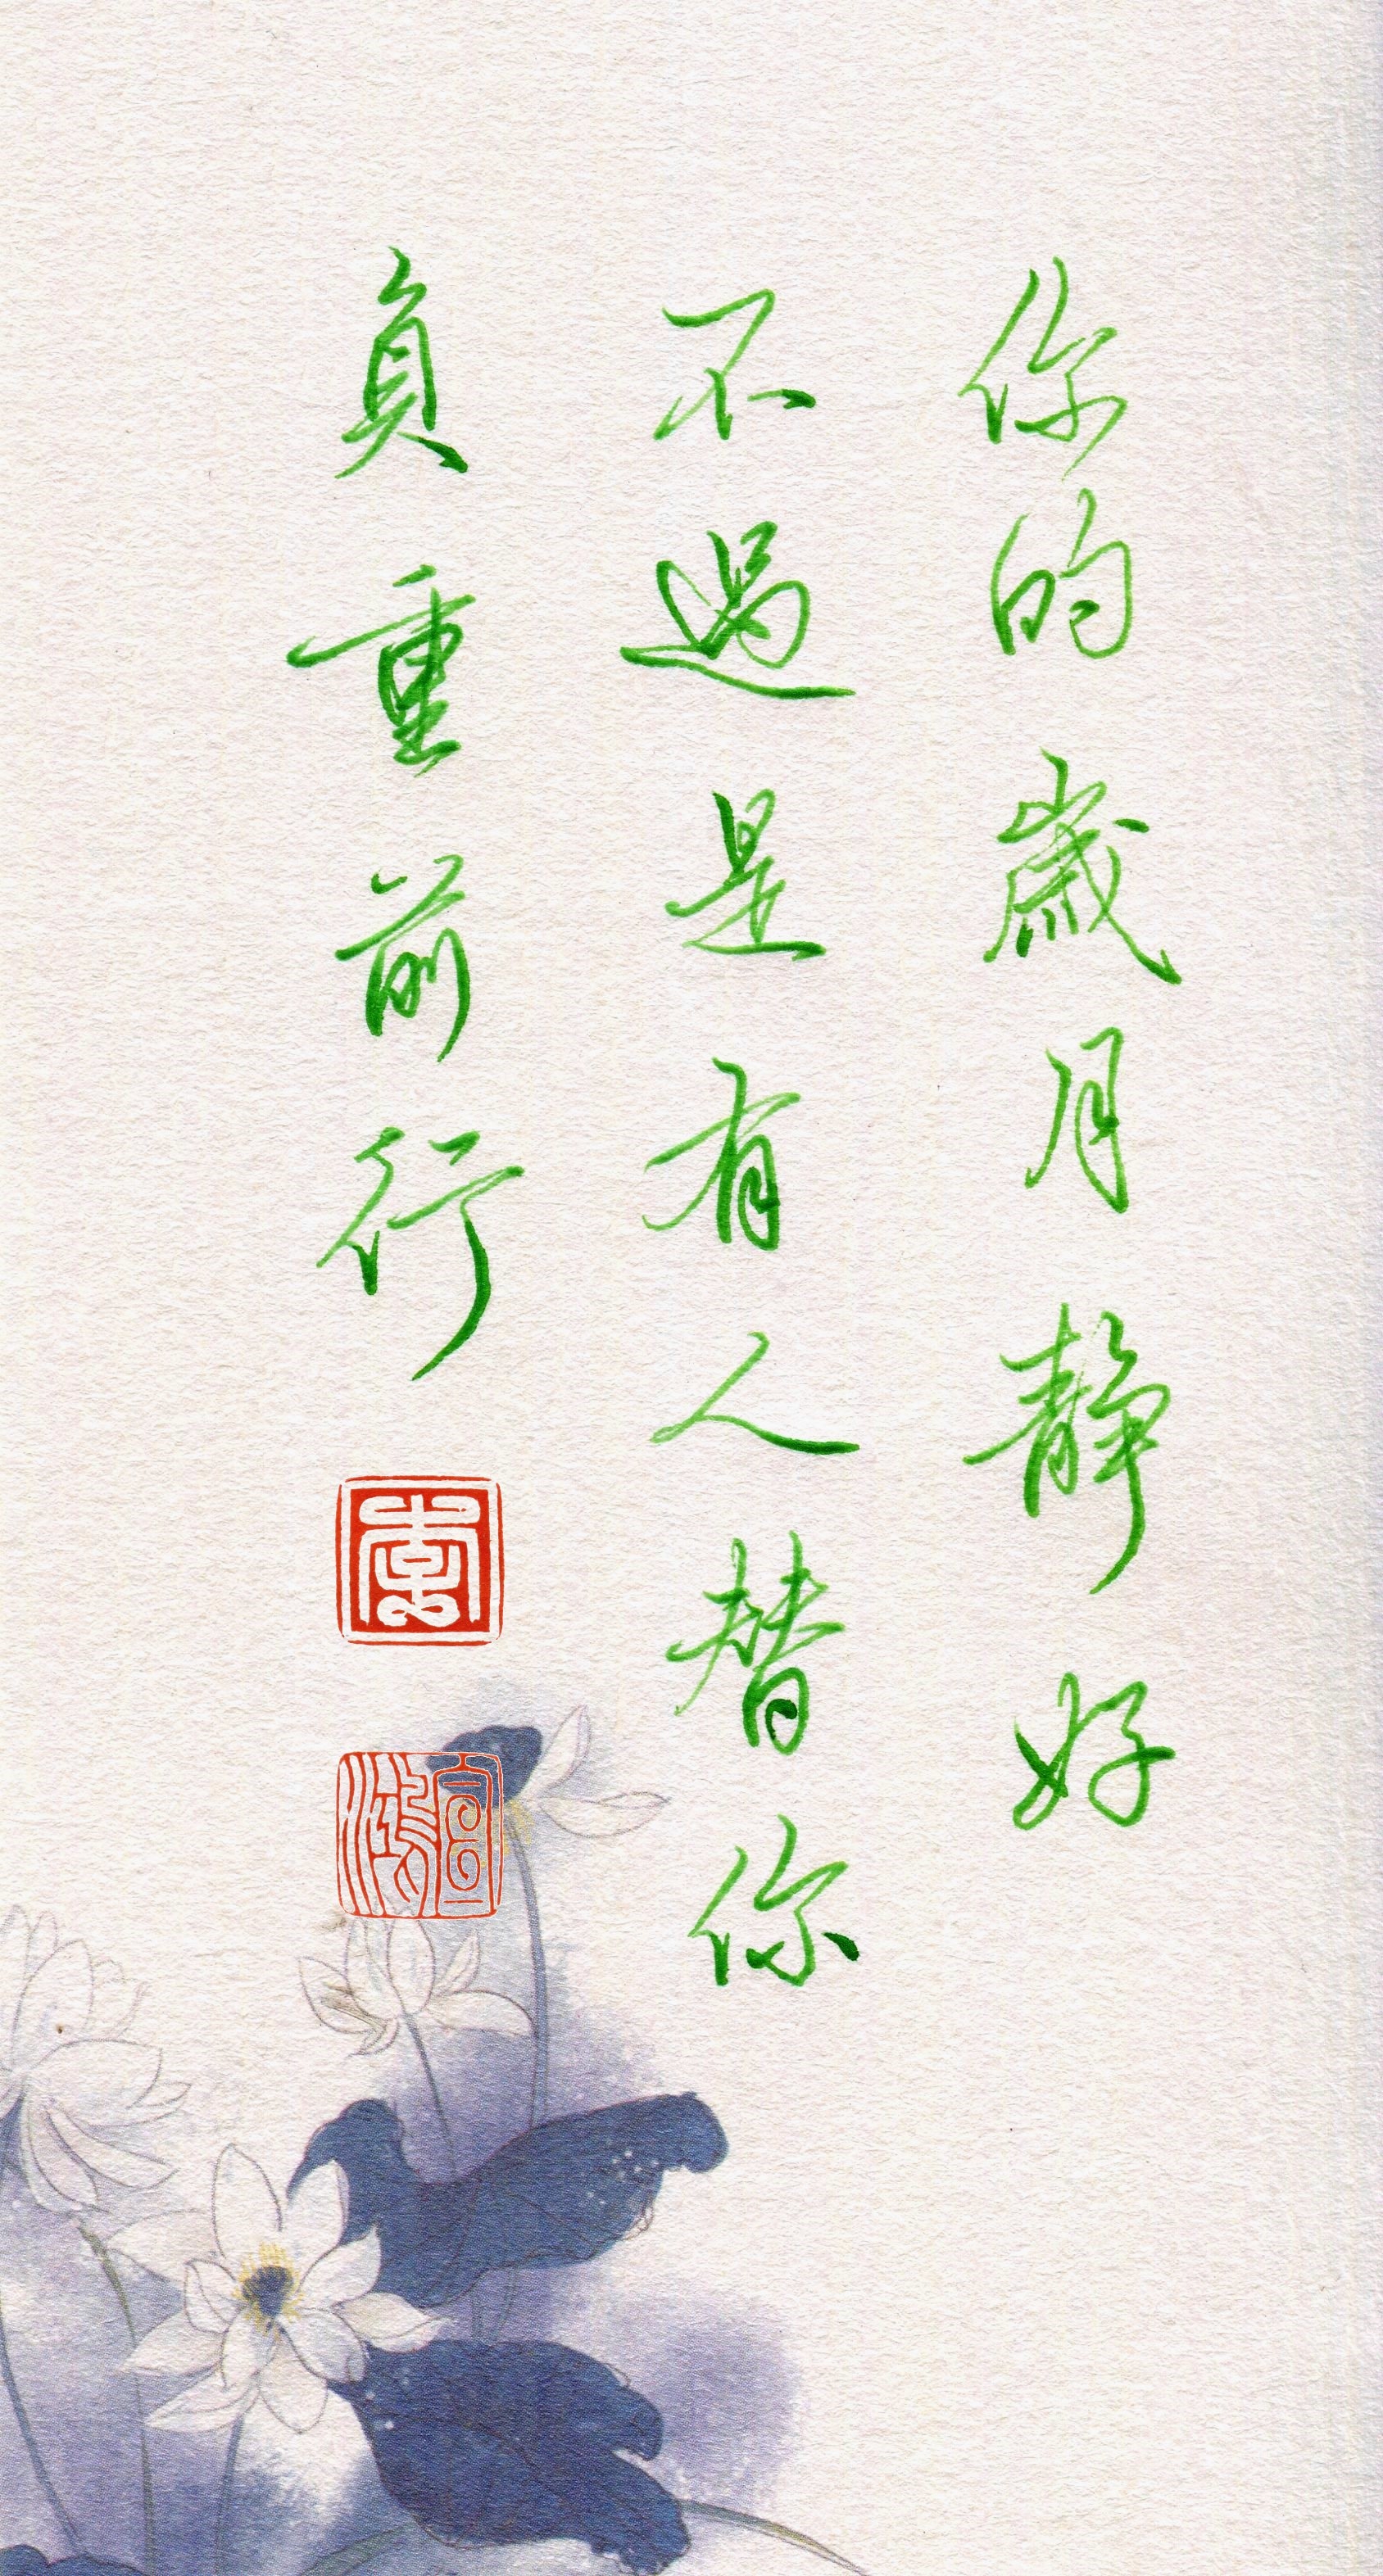 你的歲月靜好
不過是有人替你
負重前行